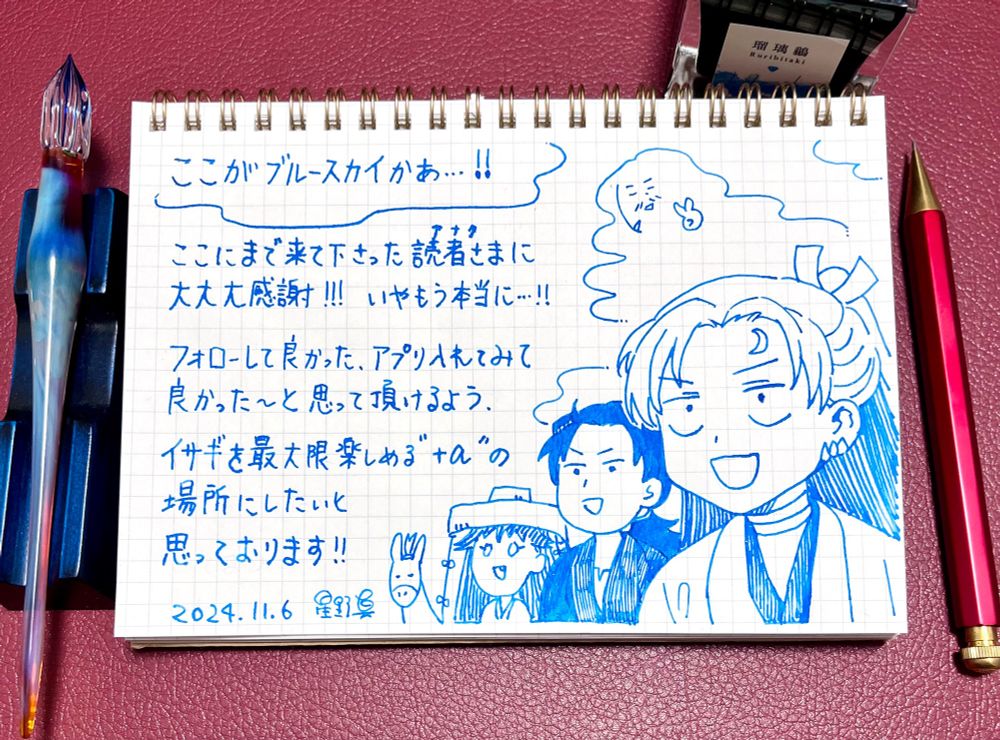 瑠璃鶲
Ruribitaki
ここがブルースカイかぁ…!!
ここにまで来て下さった読者さまに
アナタ
大大大感謝!!! いやもう本当に…!!
フォローして良かった、アプリ入れてみて
良かった〜と思って頂けるよう、
イサギを最大限楽しめる"+α"の
場所にしたいと
思っております!!
2024.11.6 星野真